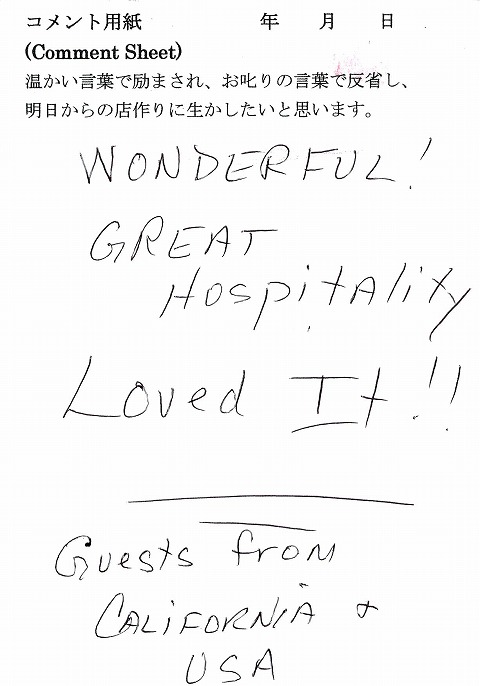 コメント用紙 年 月 日
(Comment Sheet)
温かい言葉で励まされ、お叱りの言葉で反省し、
明日からの店作りに生かしたいと思います。
WONDERFUL!
GREAT
HospitAlity
Loved It!!
Guests from
CALiFORNiA &
USA